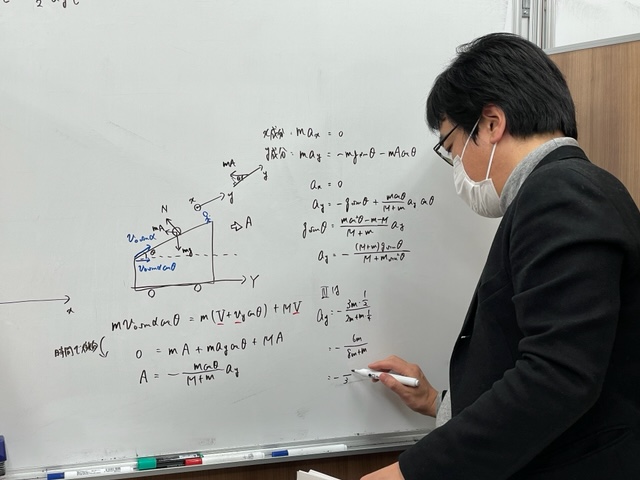 x成分: m aₓ = 0
y成分: m a_y = -mg sinθ - mA cosθ
aₓ = 0
a_y = -g sinθ + \frac{m cosθ}{M+m} a_y cosθ
g sinθ = \frac{m cos²θ - m - M}{M+m} a_y
a_y = - \frac{(M+m) g sinθ}{M + m sin²θ}
mA
θ
y
x
y
N
mA
mg
Q
⇒ A
v₀ sinα
θ
v₀ sinα cosθ
Y
x
m v₀ sinα cosθ = m(V + v_y cosθ) + MV
0 = mA + m a_y cosθ + MA
A = - \frac{m cosθ}{M+m} a_y
III 1)
a_y = - \frac{3m · \frac{1}{2}}{2m + m \frac{1}{4}}
= - \frac{6m}{8m+m}
= - \frac{}{3}